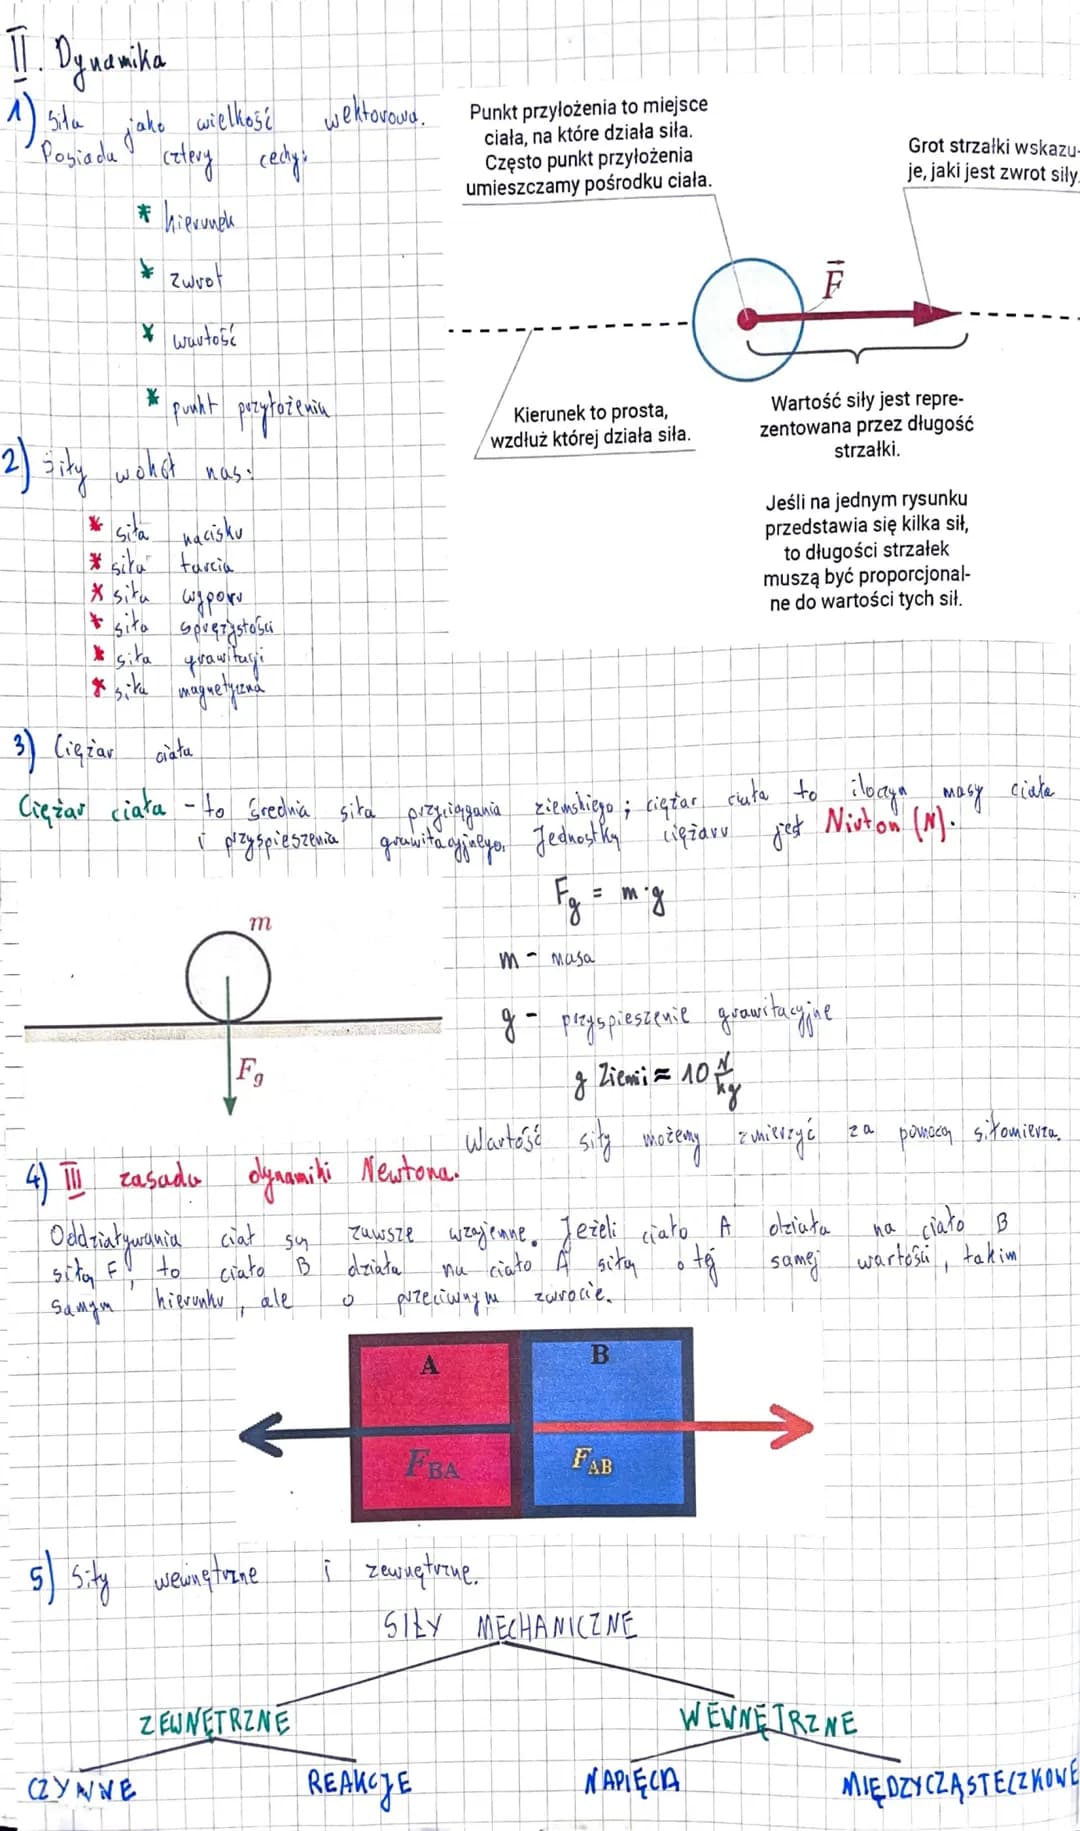 II. Dynamika
1) Siła jako wielkość wektorowa.
Posiada cztery cechy:
* kierunek
* zwrot
* wartość
* punkt przyłożenia
Punkt przyłożenia to miejsce
ciała, na które działa siła.
Często punkt przyłożenia
umieszczamy pośrodku ciała.
Grot strzałki wskazu-
je, jaki jest zwrot siły.
F
Kierunek to prosta,
wzdłuż której działa siła.
Wartość siły jest repre-
zentowana przez długość
strzałki.
Jeśli na jednym rysunku
przedstawia się kilka sił,
to długości strzałek
muszą być proporcjonal-
ne do wartości tych sił.
2) Siły wokół nas:
* siła nacisku
* siła tarcia
* siła wyporu
* siła sprężystości
* siła grawitacji
* siła magnetyczna
3) Ciężar ciała
Ciężar ciała - to średnia siła przyciągania ziemskiego; ciężar ciała to iloczyn masy ciała
i przyspieszenia grawitacyjnego. Jednostką ciężaru jest Niuton (N).
Fg = m·g
m - masa
g - przyspieszenie grawitacyjne
g Ziemi ≈ 10 N/kg
Wartość siły możemy zmierzyć za pomocą siłomierza.
m
Fg
4) III zasada dynamiki Newtona.
Oddziaływania ciał są zawsze wzajemne. Jeżeli ciało A działa na ciało B
siłą F, to ciało B działa na ciało A siłą o tej samej wartości, takim
samym kierunku, ale o przeciwnym zwrocie.
A B
FBA FAB
5) Siły wewnętrzne i zewnętrzne.
SIŁY MECHANICZNE
ZEWNĘTRZNE WEWNĘTRZNE
CZYNNE REAKCJE NAPIĘCIA MIĘDZYCZĄSTECZKOWE